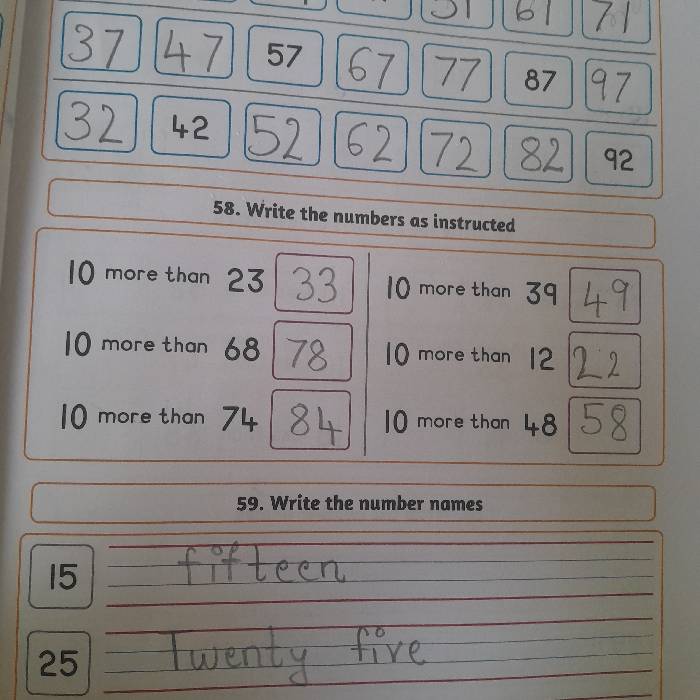 51 61 71
37 47 57 67 77 87 97
32 42 52 62 72 82 92
58. Write the numbers as instructed
10 more than 23 33 10 more than 39 49
10 more than 68 78 10 more than 12 22
10 more than 74 84 10 more than 48 58
59. Write the number names
15 fifteen
25 Twenty five